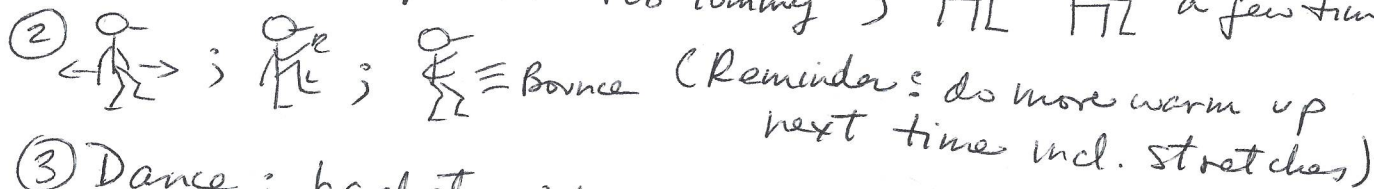 a few
② ; ; Bounce (Reminder: do more warm up
next time incl. stretches)
③ Dance: